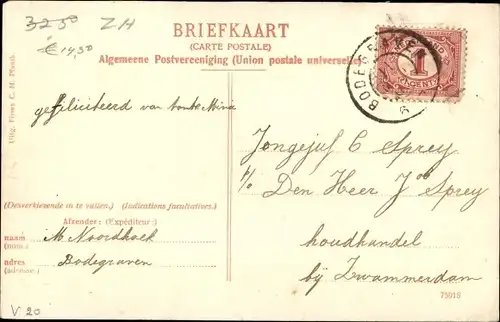 3250 ZH
€ 14,50
BRIEFKAART
(CARTE POSTALE)
Algemeene Postvereeniging (Union postale universelle)
1
CENT
BODEGRAVEN
Uitg. Firma C. H.
gefeliciteerd van tante Mina
Jongejuf C Sprey
p/a Den Heer Jos Sprey
houdhandel
bij Zwammerdam
(Desverkiezende in te vullen.) (Indications facultatives.)
Afzender: (Expéditeur:)
naam M Noordhoek
(nom:)
adres Bodegraven
(adresse:)
75018
V 20